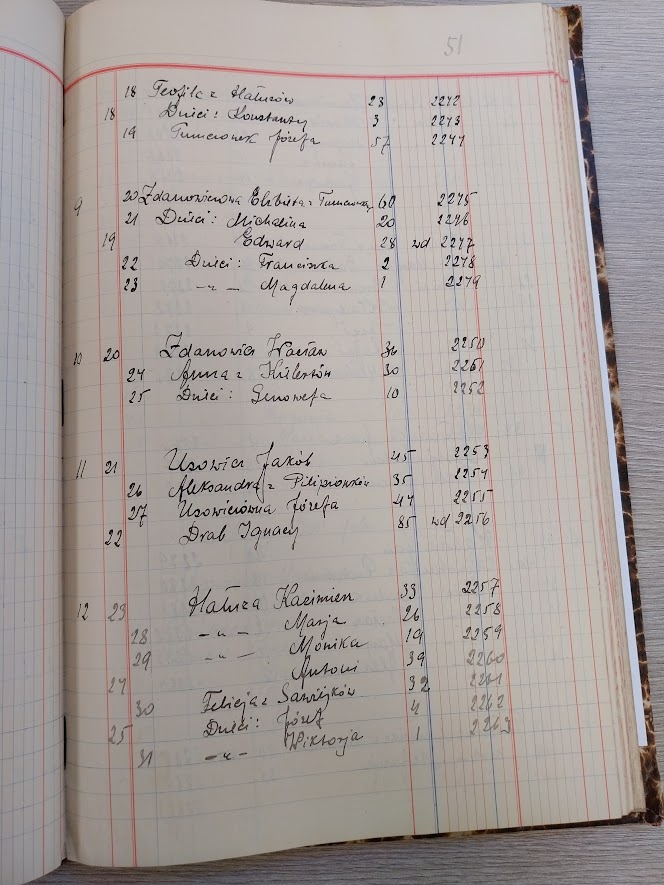 51
18 Teofila z Hałuzów 23 2242
18 Dzieci: Konstanty 3 2243
19 Tumcionek Józefa 57 2244
9 20 Zdanowiczowa Elżbieta z 60 2245
21 Dzieci: Michalina 20 2246
19 Edward 28 wd 2247
22 Dzieci: Franciszka 2 2248
23 -„- Magdalena 1 2249
10 20 Zdanowicz Wacław 36 2250
24 Anna z 30 2251
25 Dzieci: Genowefa 10 2252
11 21 Usowicz Jakób 45 2253
26 Aleksandra z Pilipionków 35 2254
27 Usowiczówna Józefa 47 2255
22 Drab Ignacy 85 wd 2256
12 23 Hałuza Kazimierz 33 2257
28 -„- Marja 26 2258
29 -„- Monika 19 2259
24 Antoni 39 2260
30 Felicja z 32 2261
25 Dzieci: Józef 4 2262
31 -„- Wiktorja 1 2263